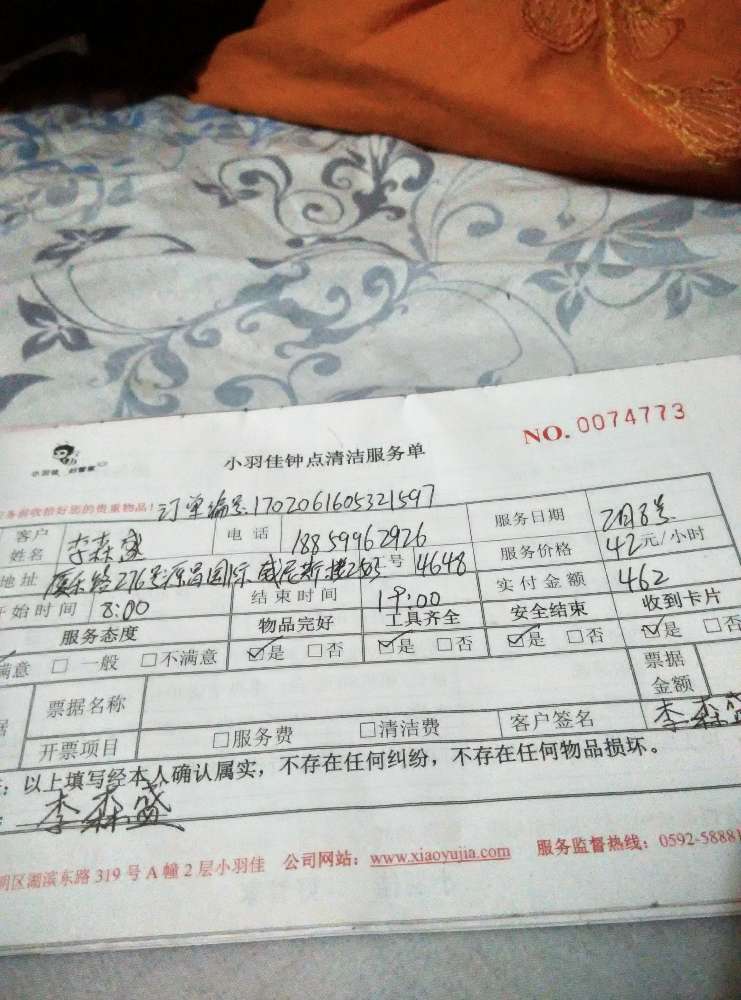 NO. 0074773
小羽佳钟点清洁服务单
务前收拾好您的贵重物品! 订单编号:1702061605321597
客户姓名 李森盛 电话 18859962926 服务日期 2月8号
地址 厦禾路276号源昌国际威尼斯楼2503 工号 4648 服务价格 42元/小时
开始时间 8:00 结束时间 19:00 实付金额 462
服务态度 物品完好 工具齐全 安全结束 收到卡片
满意 □ 一般 □不满意 ☑是 □否 ☑是 □否 ☑是 □否 ☑是 □否
据 票据名称 票据金额
开票项目 □服务费 □清洁费 客户签名 李森盛
: 以上填写经本人确认属实,不存在任何纠纷,不存在任何物品损坏。
: 李森盛
明区湖滨东路319号A幢2层小羽佳 公司网站: www.xiaoyujia.com 服务监督热线: 0592-58881